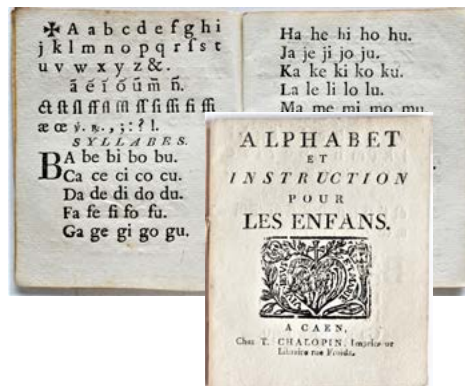 ✠ A a b c d e f g h i
j k l m n o p q r ſ s t
u v w x y z &.
ã ẽ ĩ õ ũ m̃ ñ.
æ œ
SYLLABES.
BA be bi bo bu.
Ca ce ci co cu.
Da de di do du.
Fa fe fi fo fu.
Ga ge gi go gu.
Ha he hi ho hu.
Ja je ji jo ju.
Ka ke ki ko ku.
La le li lo lu.
Ma me mi mo mu.
ALPHABET
ET
INSTRUCTION
POUR
LES ENFANS.
A CAEN,
Chez T. CHALOPIN, Imprimeur
Libraire rue Froide.